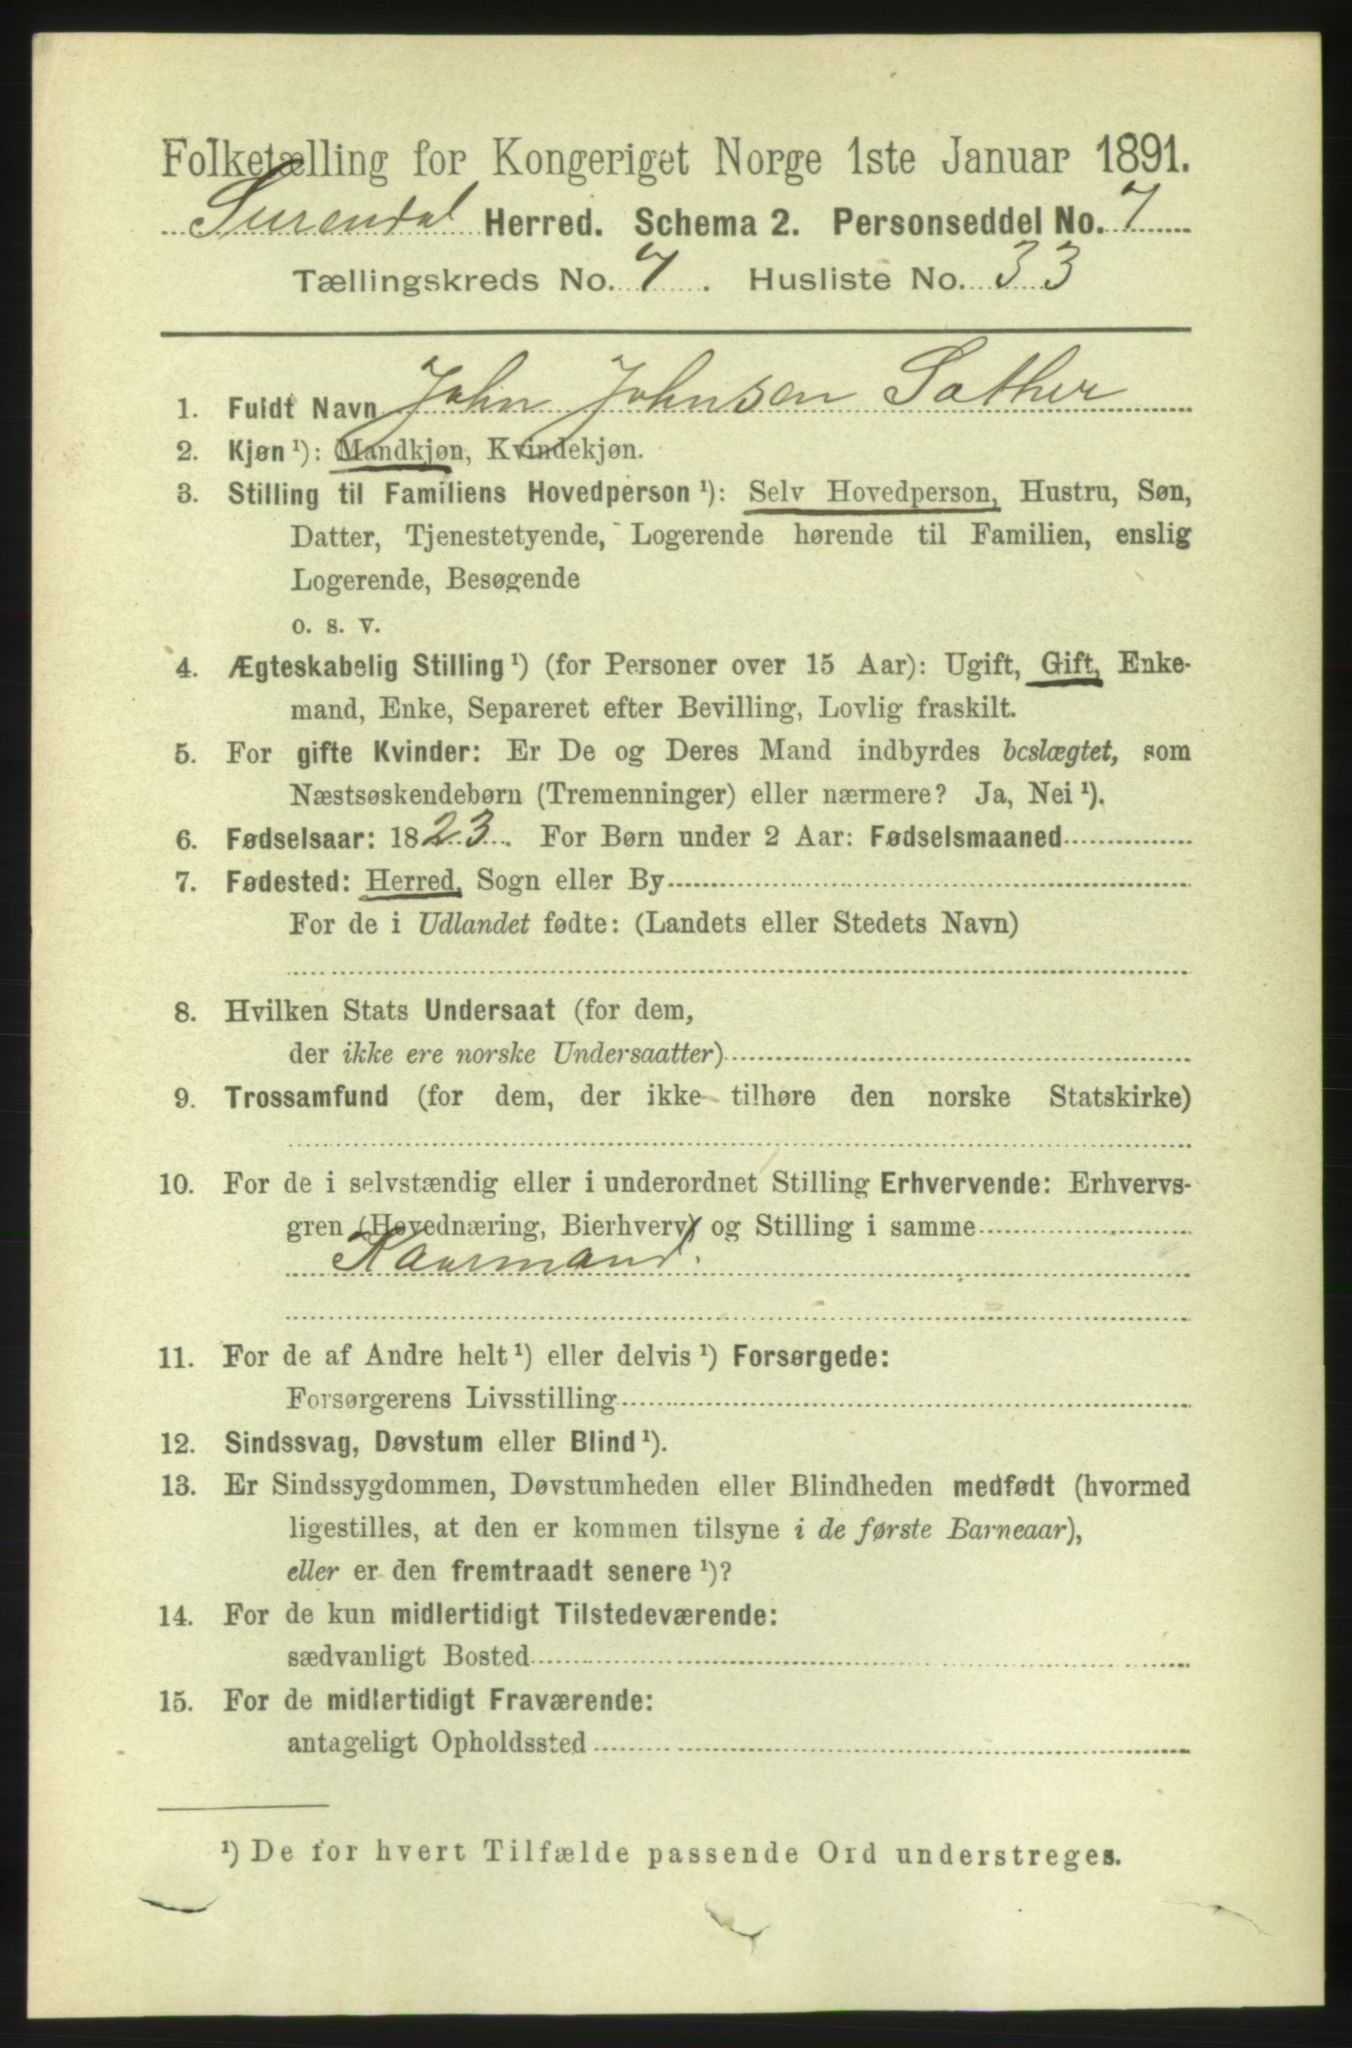 Folketælling for Kongeriget Norge 1ste Januar 1891.
Surendal Herred. Schema 2. Personseddel No. 7
Tællingskreds No. 7. Husliste No. 33
1. Fuldt Navn John Johnsen Sæther
2. Kjøn ¹): Mandkjøn, Kvindekjøn.
3. Stilling til Familiens Hovedperson ¹): Selv Hovedperson, Hustru, Søn,
Datter, Tjenestetyende, Logerende hørende til Familien, enslig
Logerende, Besøgende
o. s. v.
4. Ægteskabelig Stilling ¹) (for Personer over 15 Aar): Ugift, Gift, Enke-
mand, Enke, Separeret efter Bevilling, Lovlig fraskilt.
5. For gifte Kvinder: Er De og Deres Mand indbyrdes beslægtet, som
Næstsøskendebørn (Tremenninger) eller nærmere? Ja, Nei ¹).
6. Fødselsaar: 1823. For Børn under 2 Aar: Fødselsmaaned
7. Fødested: Herred, Sogn eller By
For de i Udlandet fødte: (Landets eller Stedets Navn)
8. Hvilken Stats Undersaat (for dem,
der ikke ere norske Undersaatter)
9. Trossamfund (for dem, der ikke tilhøre den norske Statskirke)
10. For de i selvstændig eller i underordnet Stilling Erhvervende: Erhvervs-
gren (Hovednæring, Bierhverv) og Stilling i samme
Kaarmand.
11. For de af Andre helt ¹) eller delvis ¹) Forsørgede:
Forsørgerens Livsstilling
12. Sindssvag, Døvstum eller Blind ¹).
13. Er Sindssygdommen, Døvstumheden eller Blindheden medfødt (hvormed
ligestilles, at den er kommen tilsyne i de første Barneaar),
eller er den fremtraadt senere ¹)?
14. For de kun midlertidigt Tilstedeværende:
sædvanligt Bosted
15. For de midlertidigt Fraværende:
antageligt Opholdssted
¹) De for hvert Tilfælde passende Ord understreges.